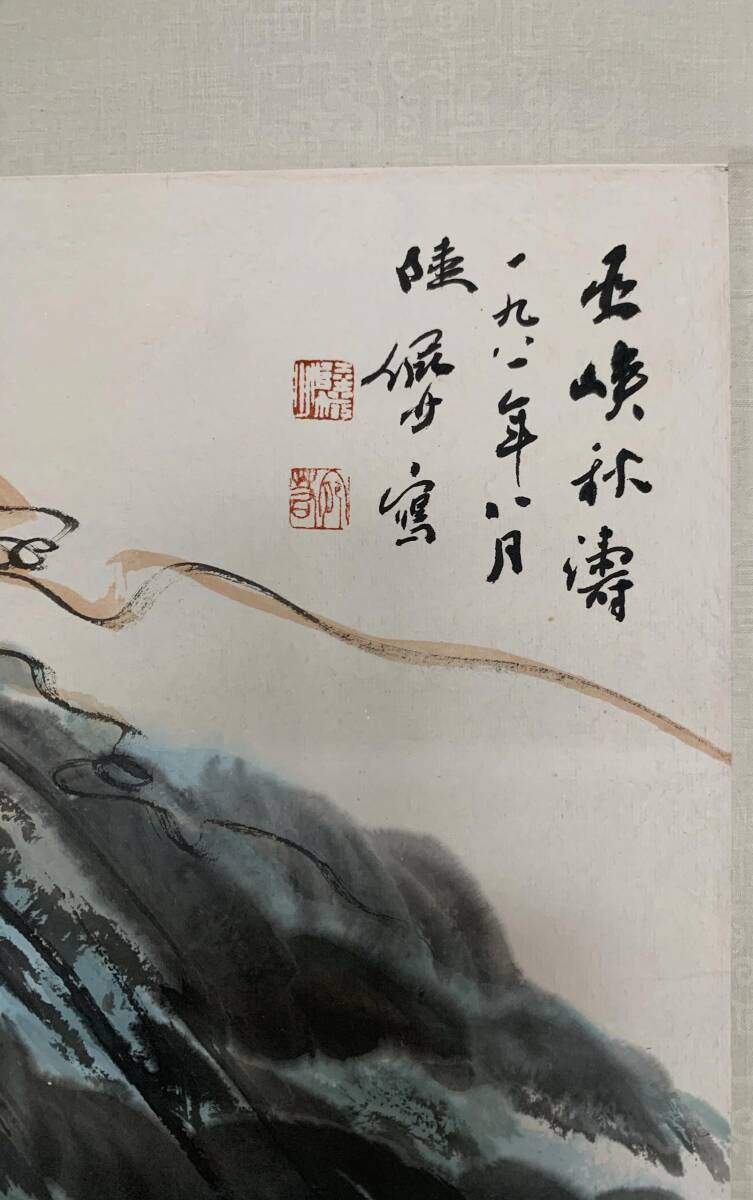 巫峡秋濤
一九八一年八月
陸儼少寫